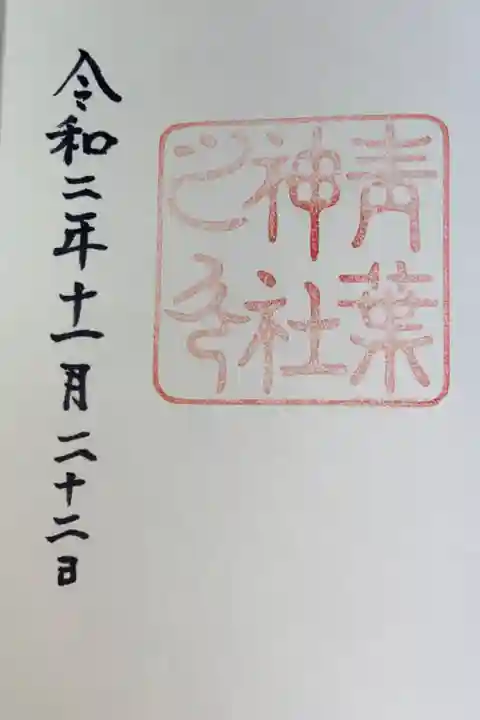 青葉
神社
令和二年十一月二十二日